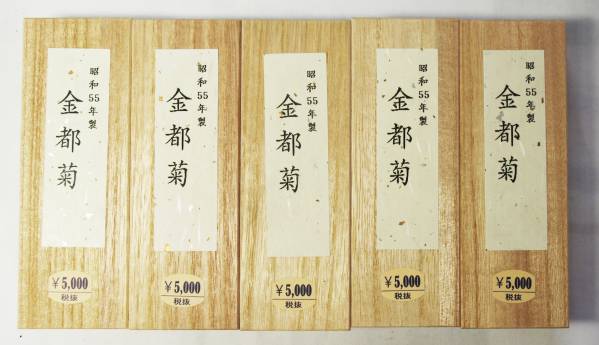 昭和55年製
金都菊
¥5,000
税抜
昭和55年製
金都菊
¥5,000
税抜
昭和55年製
金都菊
¥5,000
税抜
昭和55年製
金都菊
¥5,000
税抜
昭和55年製
金都菊
¥5,000
税抜